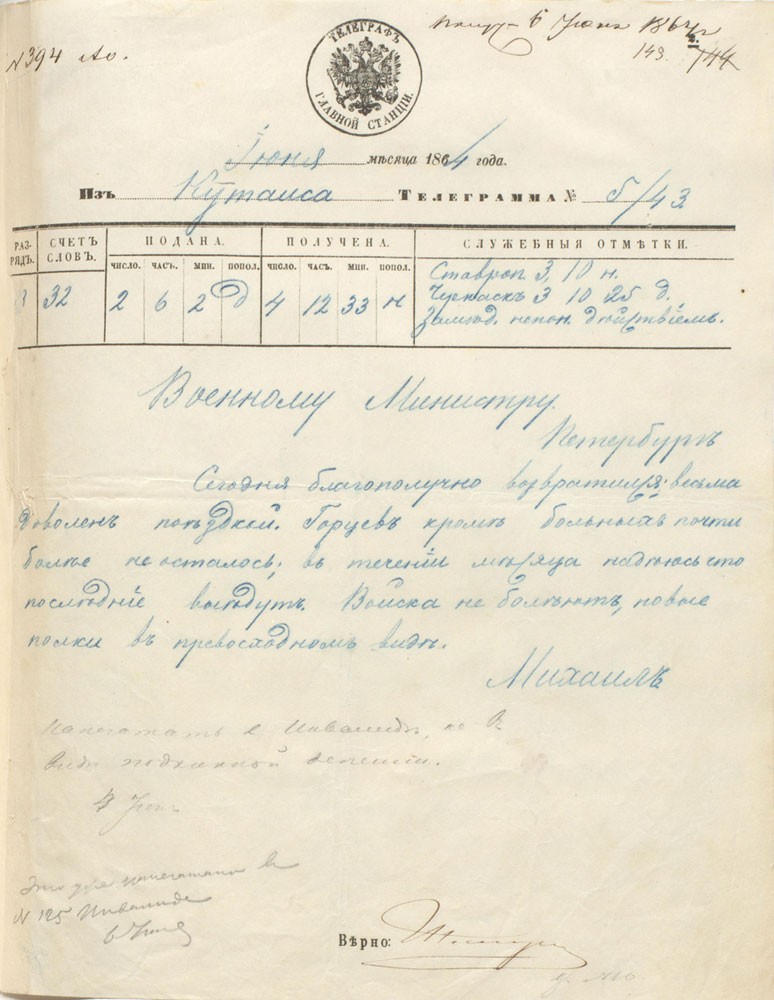 №394
6 Июня 1864 г.
143. 144
ТЕЛЕГРАФЪ
ГЛАВНОЙ СТАНЦІИ.
Іюня мѣсяца 1864 года.
Изъ Кутаиса Телеграмма № 5/43
РАЗРЯДЪ. СЧЕТЪ СЛОВЪ. ПОДАНА. ПОЛУЧЕНА. СЛУЖЕБНЫЯ ОТМѢТКИ.
ЧИСЛО. ЧАСЪ. МИН. ПОПОЛ. ЧИСЛО. ЧАСЪ. МИН. ПОПОЛ.
32 2 6 2 д 4 12 33 н
Ставроп 3, 10 н.
3 10 25 д.
дѣйствіемъ.
Военному Министру.
Петербургъ
Сегодня благополучно возвратился; весьма
доволенъ поѣздкой. Горцевъ кромѣ больныхъ почти
болѣе не осталось; въ теченіи мѣсяца надѣюсь что
послѣдніе выѣдутъ. Войска не болѣютъ, новые
полки въ превосходномъ видѣ.
Михаилъ
Напечатать въ Инвалидѣ, но
видѣ депеши.
Это уже напечатано въ
№ 125 Инвалида
6 Іюня
Вѣрно: